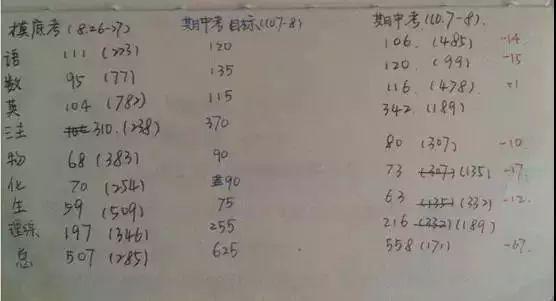 摸底考 (8.26-27) 期中考 目标 (10.7-8) 期中考 (10.7-8).
语 111 (223) 120 106. (485) -14
数 95 (77) 135 120. (99) -15
英 104 (782) 115 116 (478) +1
三主 310. (238) 370 342. (189)
物 68 (383) 90 80 (307) -10
化 70 (254) 90 73 (307) (135) -17
生 59 (509) 75 63 (135) (332) -12
理综 197 (346) 255 216 (332) (189)
总 507 (285) 625 558 (171) -67